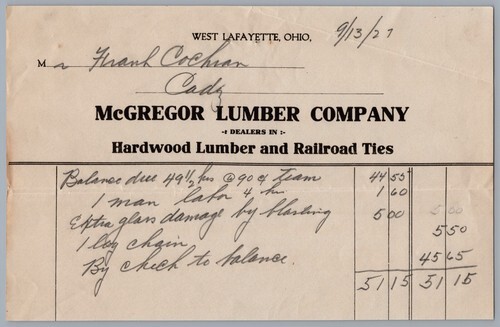 WEST LAFAYETTE, OHIO, 9/13/27
M r Frank Cochran
Cady
McGREGOR LUMBER COMPANY
-: DEALERS IN :-
Hardwood Lumber and Railroad Ties
Balance due 49 1/2 hrs @ 90¢ Team 44 55
1 man labor 4 hr 1 60
Extra glass damage by blasting 5 00 5 00
1 log chain 5 50
By check to balance. 45 65
51 15 51 15